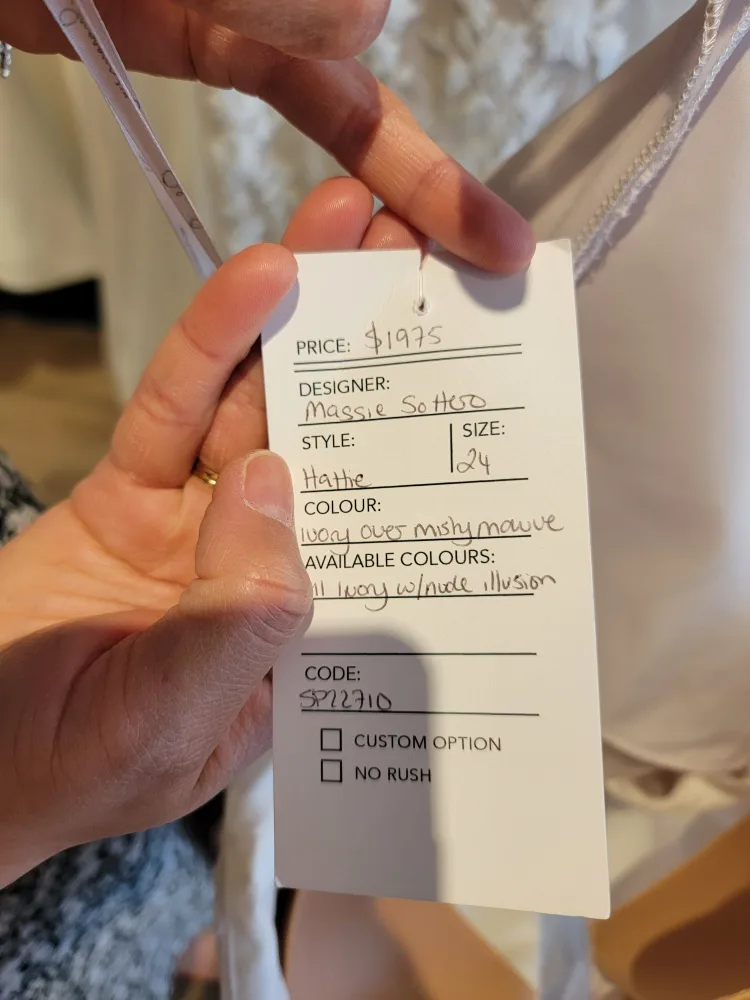 PRICE: $1975
DESIGNER:
Maggie Sottero
STYLE:
SIZE:
Hattie
24
COLOUR:
Ivory over misty mauve
AVAILABLE COLOURS:
All Ivory w/nude illusion
CODE:
SP22710
CUSTOM OPTION
NO RUSH